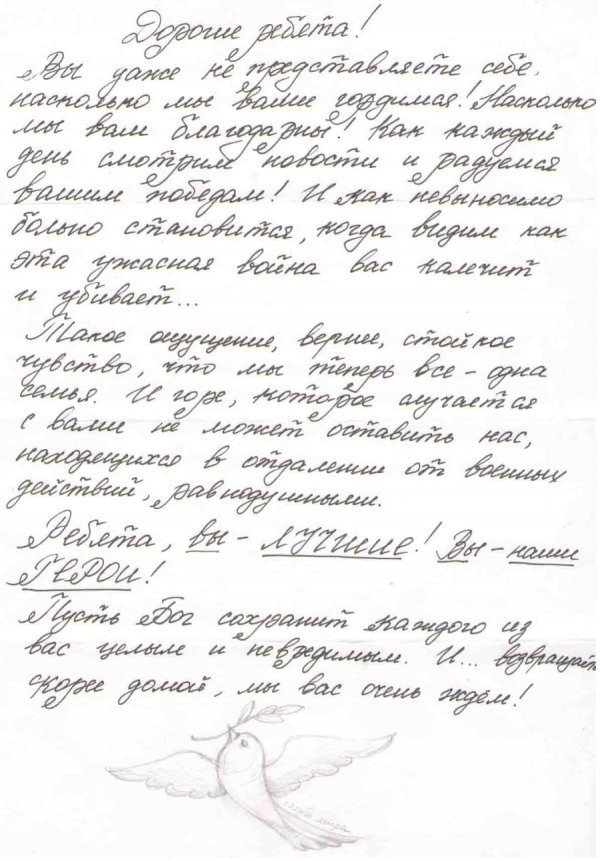 Дорогие ребята!
Вы даже не представляете себе,
насколько мы вами гордимся! Насколько
мы вам благодарны! Как каждый
день смотрим новости и радуемся
вашим победам! И как невыносимо
больно становится, когда видим как
эта ужасная война вас калечит
и убивает...
Такое ощущение, вернее, стойкое
чувство, что мы теперь все - одна
семья. И горе, которое случается
с вами не может оставить нас,
находящихся в отдалении от военных
действий, равнодушными.
Ребята, вы - ЛУЧШИЕ! Вы - наши
ГЕРОИ!
Пусть Бог сохранит каждого из
вас целым и невредимым. И... возвращайтесь
скорее домой, мы вас очень ждём!
голубь мира